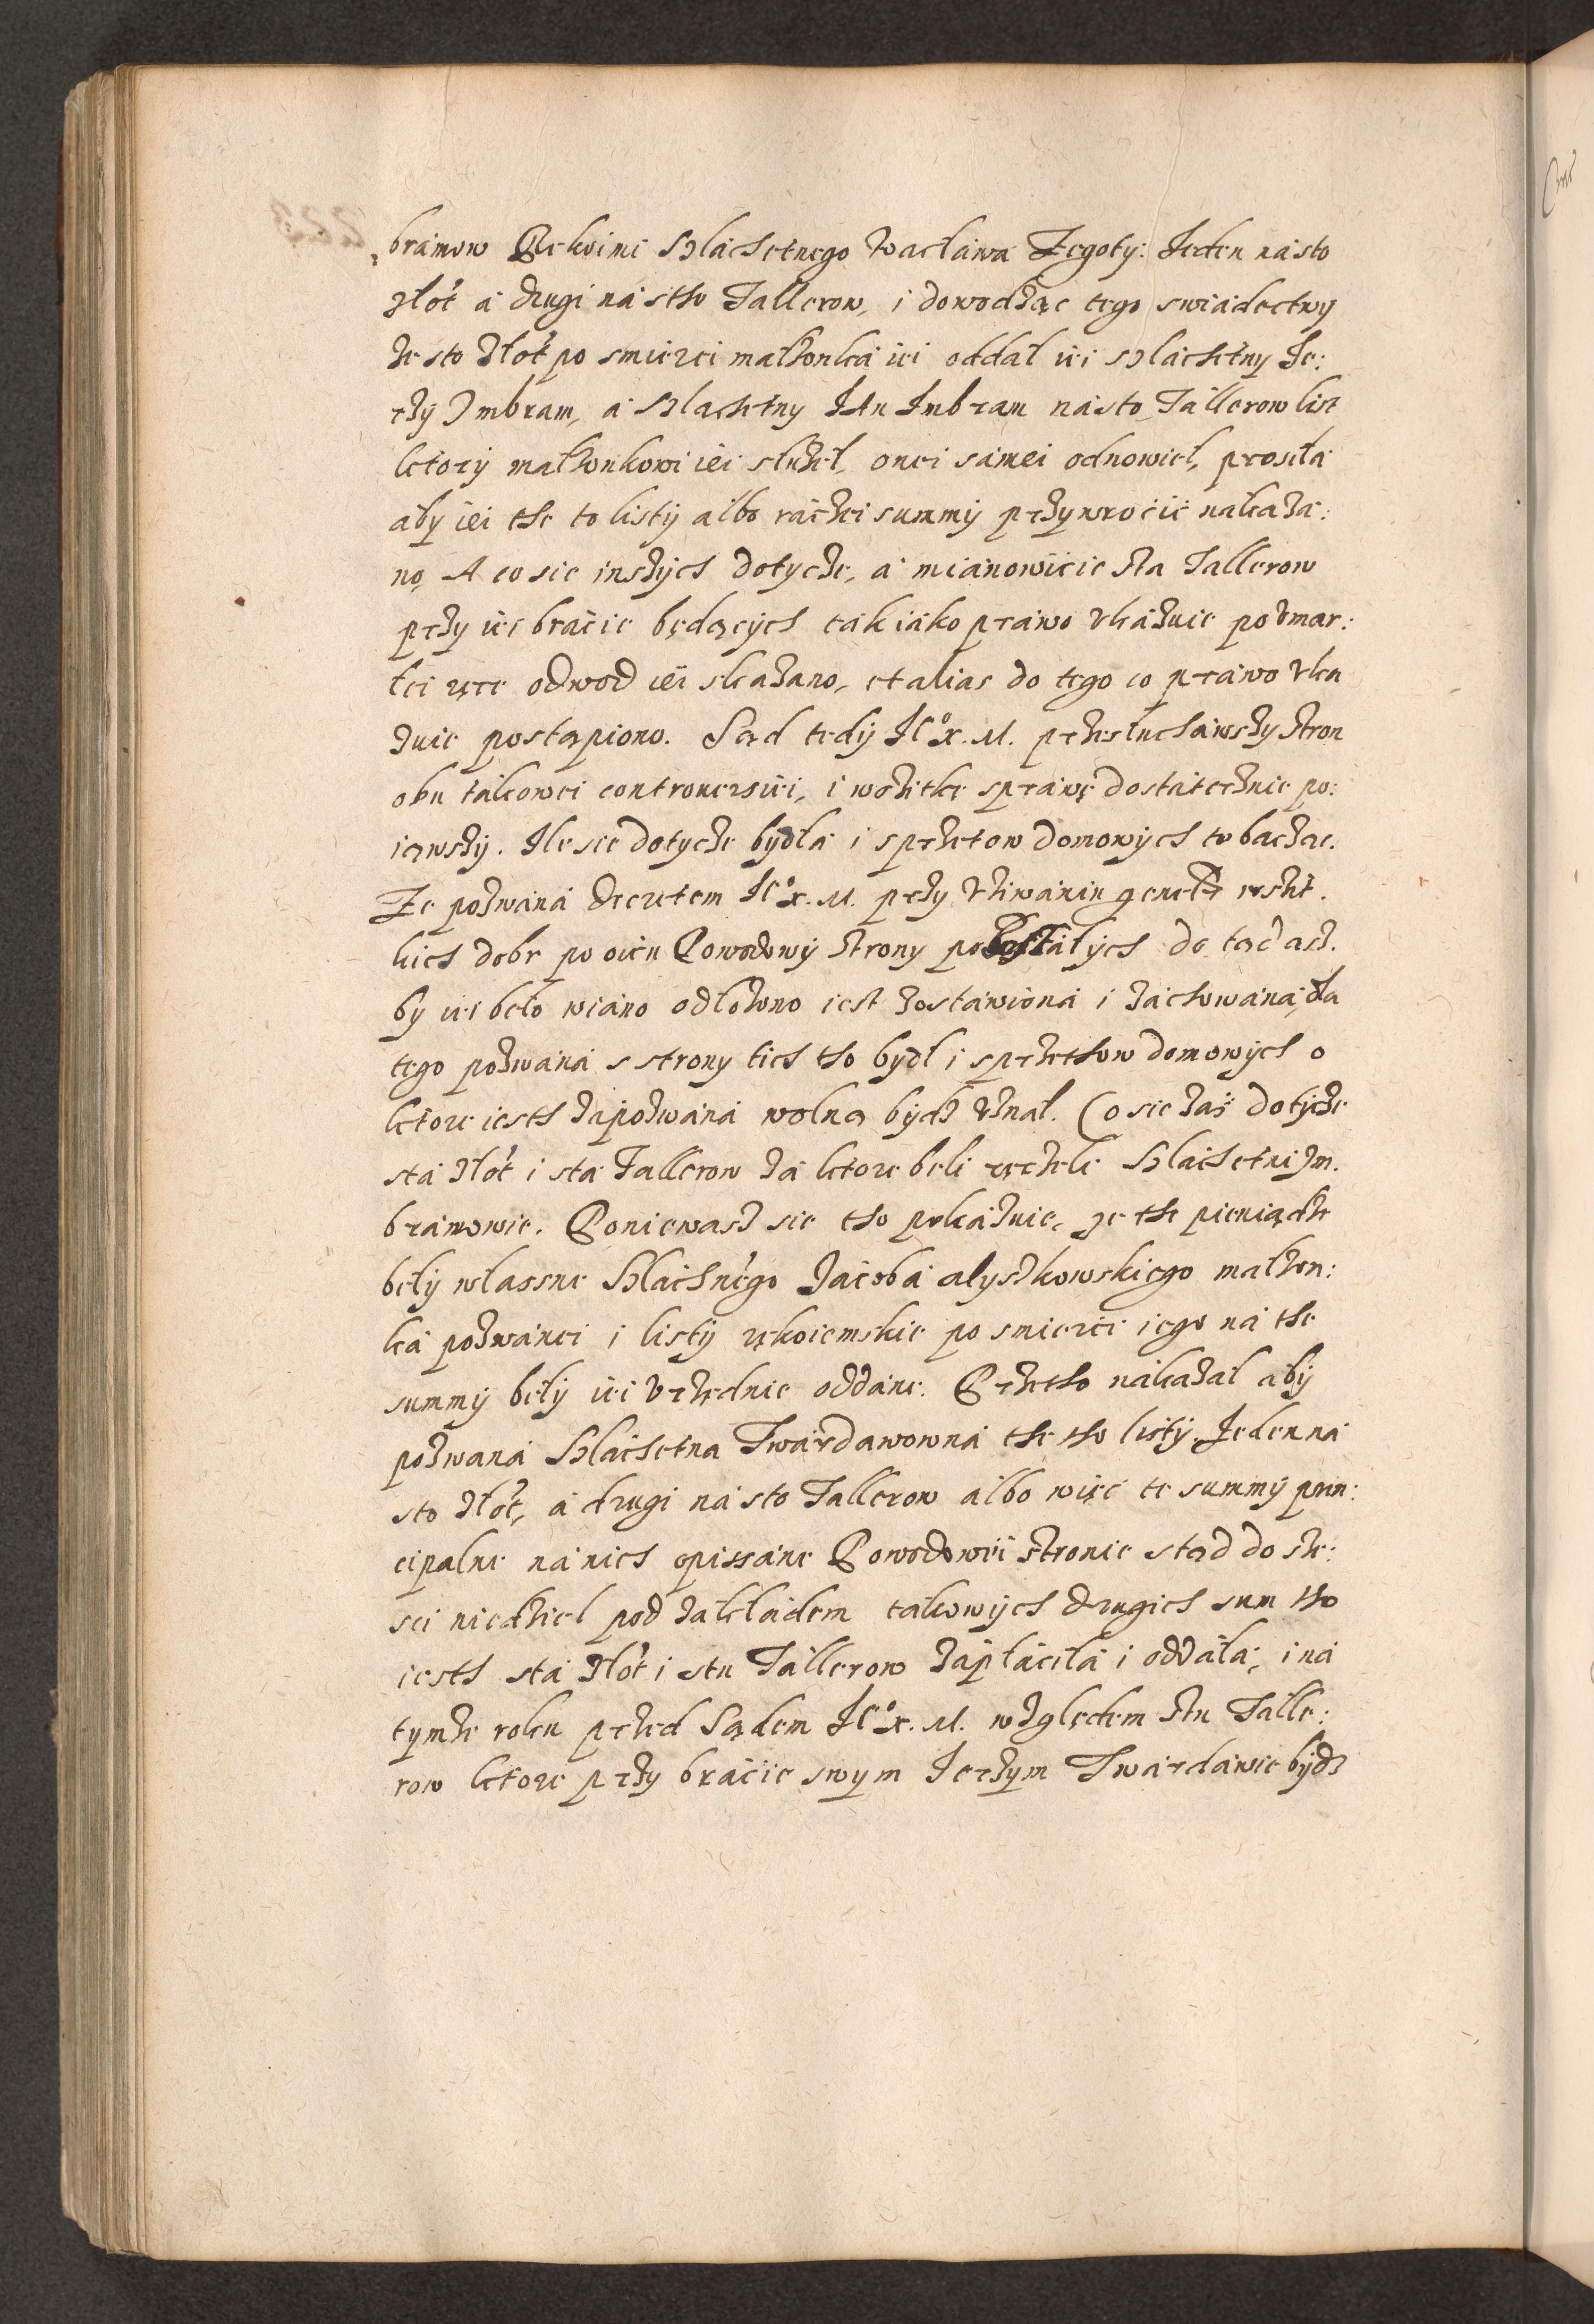 bramow Rekoimi Szlachetnego Wacława Zegoty: Jeden na sto
złot a drugi na stho Tallerow, i dowodząc tego swiadectwy
że sto złot po smierci małżonka iei oddał iei szlachetny Je:
rzy Imbram, a Szlachetny Jan Imbram na sto Tallerow list
ktory małżonkowi iei służeł, onei samei odnowieł, prosiła
aby iei the to listy albo raczei summy przywrocić nakaza:
no, A co sie inszych dotycze, a mianowicie sta Tallerow
przy iei bracie będących tak iako prawo vkazuie po vmar:
łei ręce odwod iei skazano, et alias do tego co prawo vka
zuie postąpiono. Sąd tedy Jᵒ X. M. przesłuchawszy stron
obu takowei controuersiei, i wszitkę sprawę dostatecznie po:
iąwszy. Ile sie dotycze bydła i sprzetow domowych to bacząc.
Że pozwana decretem Jᵒ X. M. przy vżiwaniu wszit.
kich dobr po oicu Powodowy strony pozostałych do tąd asz.
by iei beło wiano odłożono iest zostawiona i zachowana, dla
tego pozwaną s strony tich tho bydł i sprzethow domowych o
ktore iesth zapozwana wolną bydz vznał. Co sie zaś dotycze
sta złot i sta Tallerow za ktore beli ręczeli Szlachetni Im.
bramowie. Poniewasz sie tho pokazuie, ze the pieniądze
beły własne Szlachnego Jacoba małżon:
ka pozwanei i listy rękoiemskie po smierci iego na the
summy beły iei vrzędnie oddane. Przetho nakazał aby
pozwana Szlachetna Twardawowna the tho listy Jeden na
sto złot, a drugi na sto Tallerow albo więc te summy prin:
cipalne na nich opissane Powodowei stronie stąd do sze:
sci niedziel pod zakładem takowych drugich sum tho
iesth sta złot i stu Tallerow zapłaciła i oddała, i na
tymże roku przed Sądem Jᵒ X. M. względem stu Talle:
row ktore przy bracie swym Jerzym Twardawie bydz